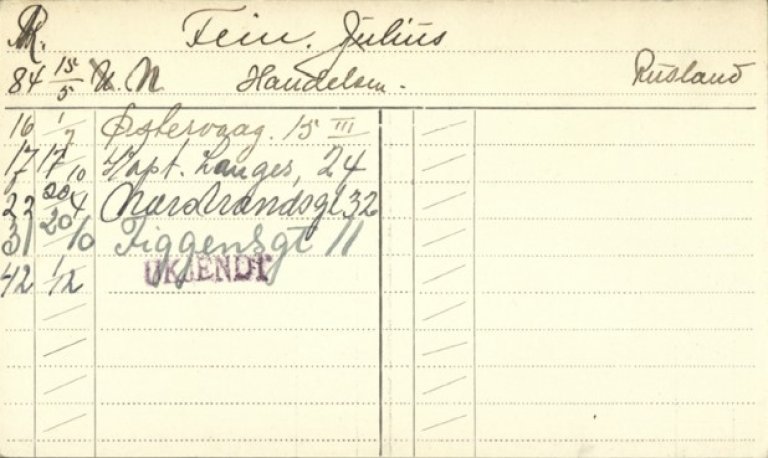 R. Fein. Julius
84 15/5 U. N Handelsm. Rusland
16 1/7 Østervaag. 15 III
17 17/10 Kapt. Langes, 24
22 20/4 Nordstrandsgt 32
31 20/10 Figgensgt 11
42 1/12 UKJENDT